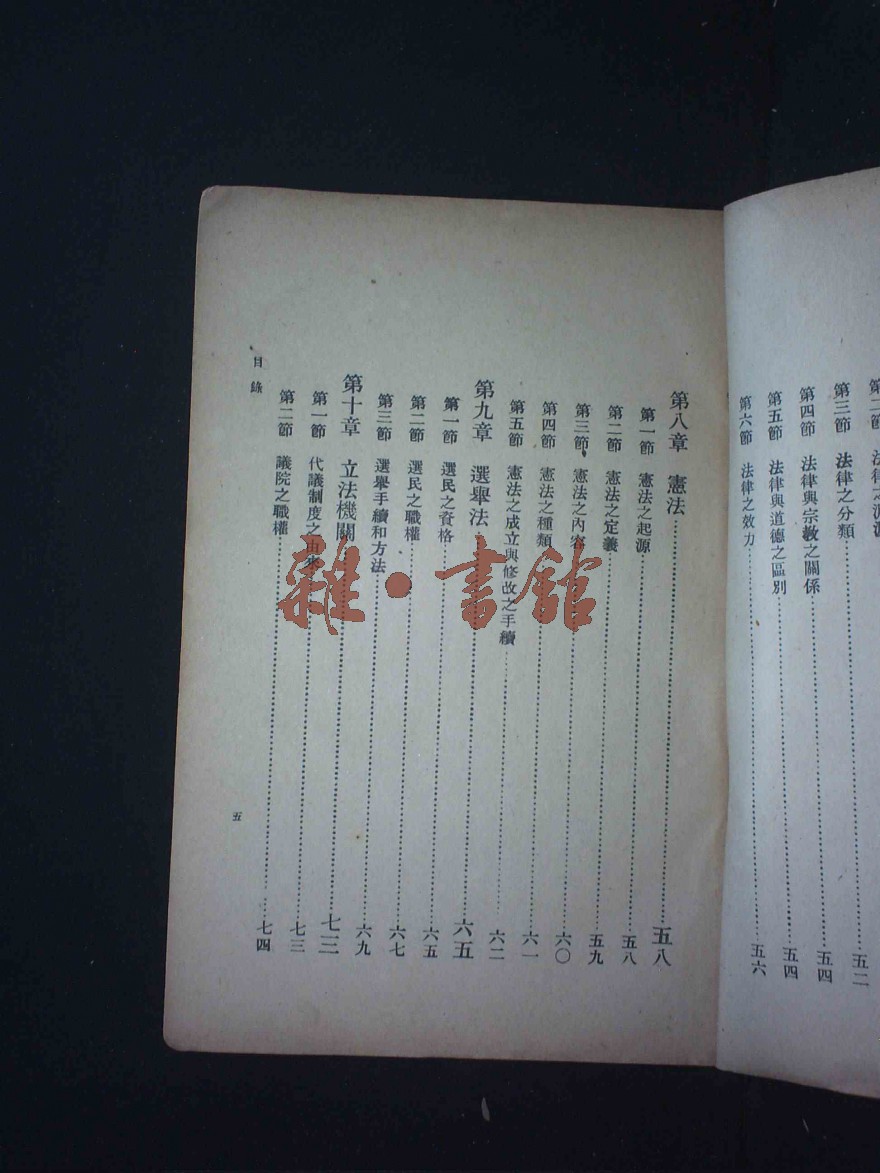 第三節 法律之分類……五二
第四節 法律與宗教之關係……五四
第五節 法律與道德之區別……五四
第六節 法律之效力……五六
第八章 憲法……五八
第一節 憲法之起源……五八
第二節 憲法之定義……五九
第三節 憲法之內容……六〇
第四節 憲法之種類……六一
第五節 憲法之成立與修改之手續……六二
第九章 選舉法……六五
第一節 選民之資格……六五
第二節 選民之職權……六七
第三節 選舉手續和方法……六九
第十章 立法機關……七三
第一節 代議制度之由來……七三
第二節 議院之職權……七四
目錄
五
雜·書館